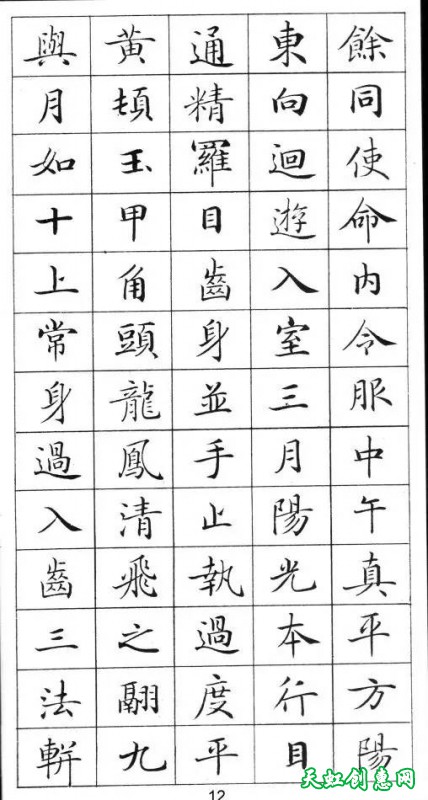 餘同使命內令服中午真平方陽
東向迴遊入室三月陽光本行目
通精羅目齒身並手止執過度平
黃玉甲角頭龍鳳清飛之翩九
與月如十上常身過入齒三法輧
12
天虹创惠网